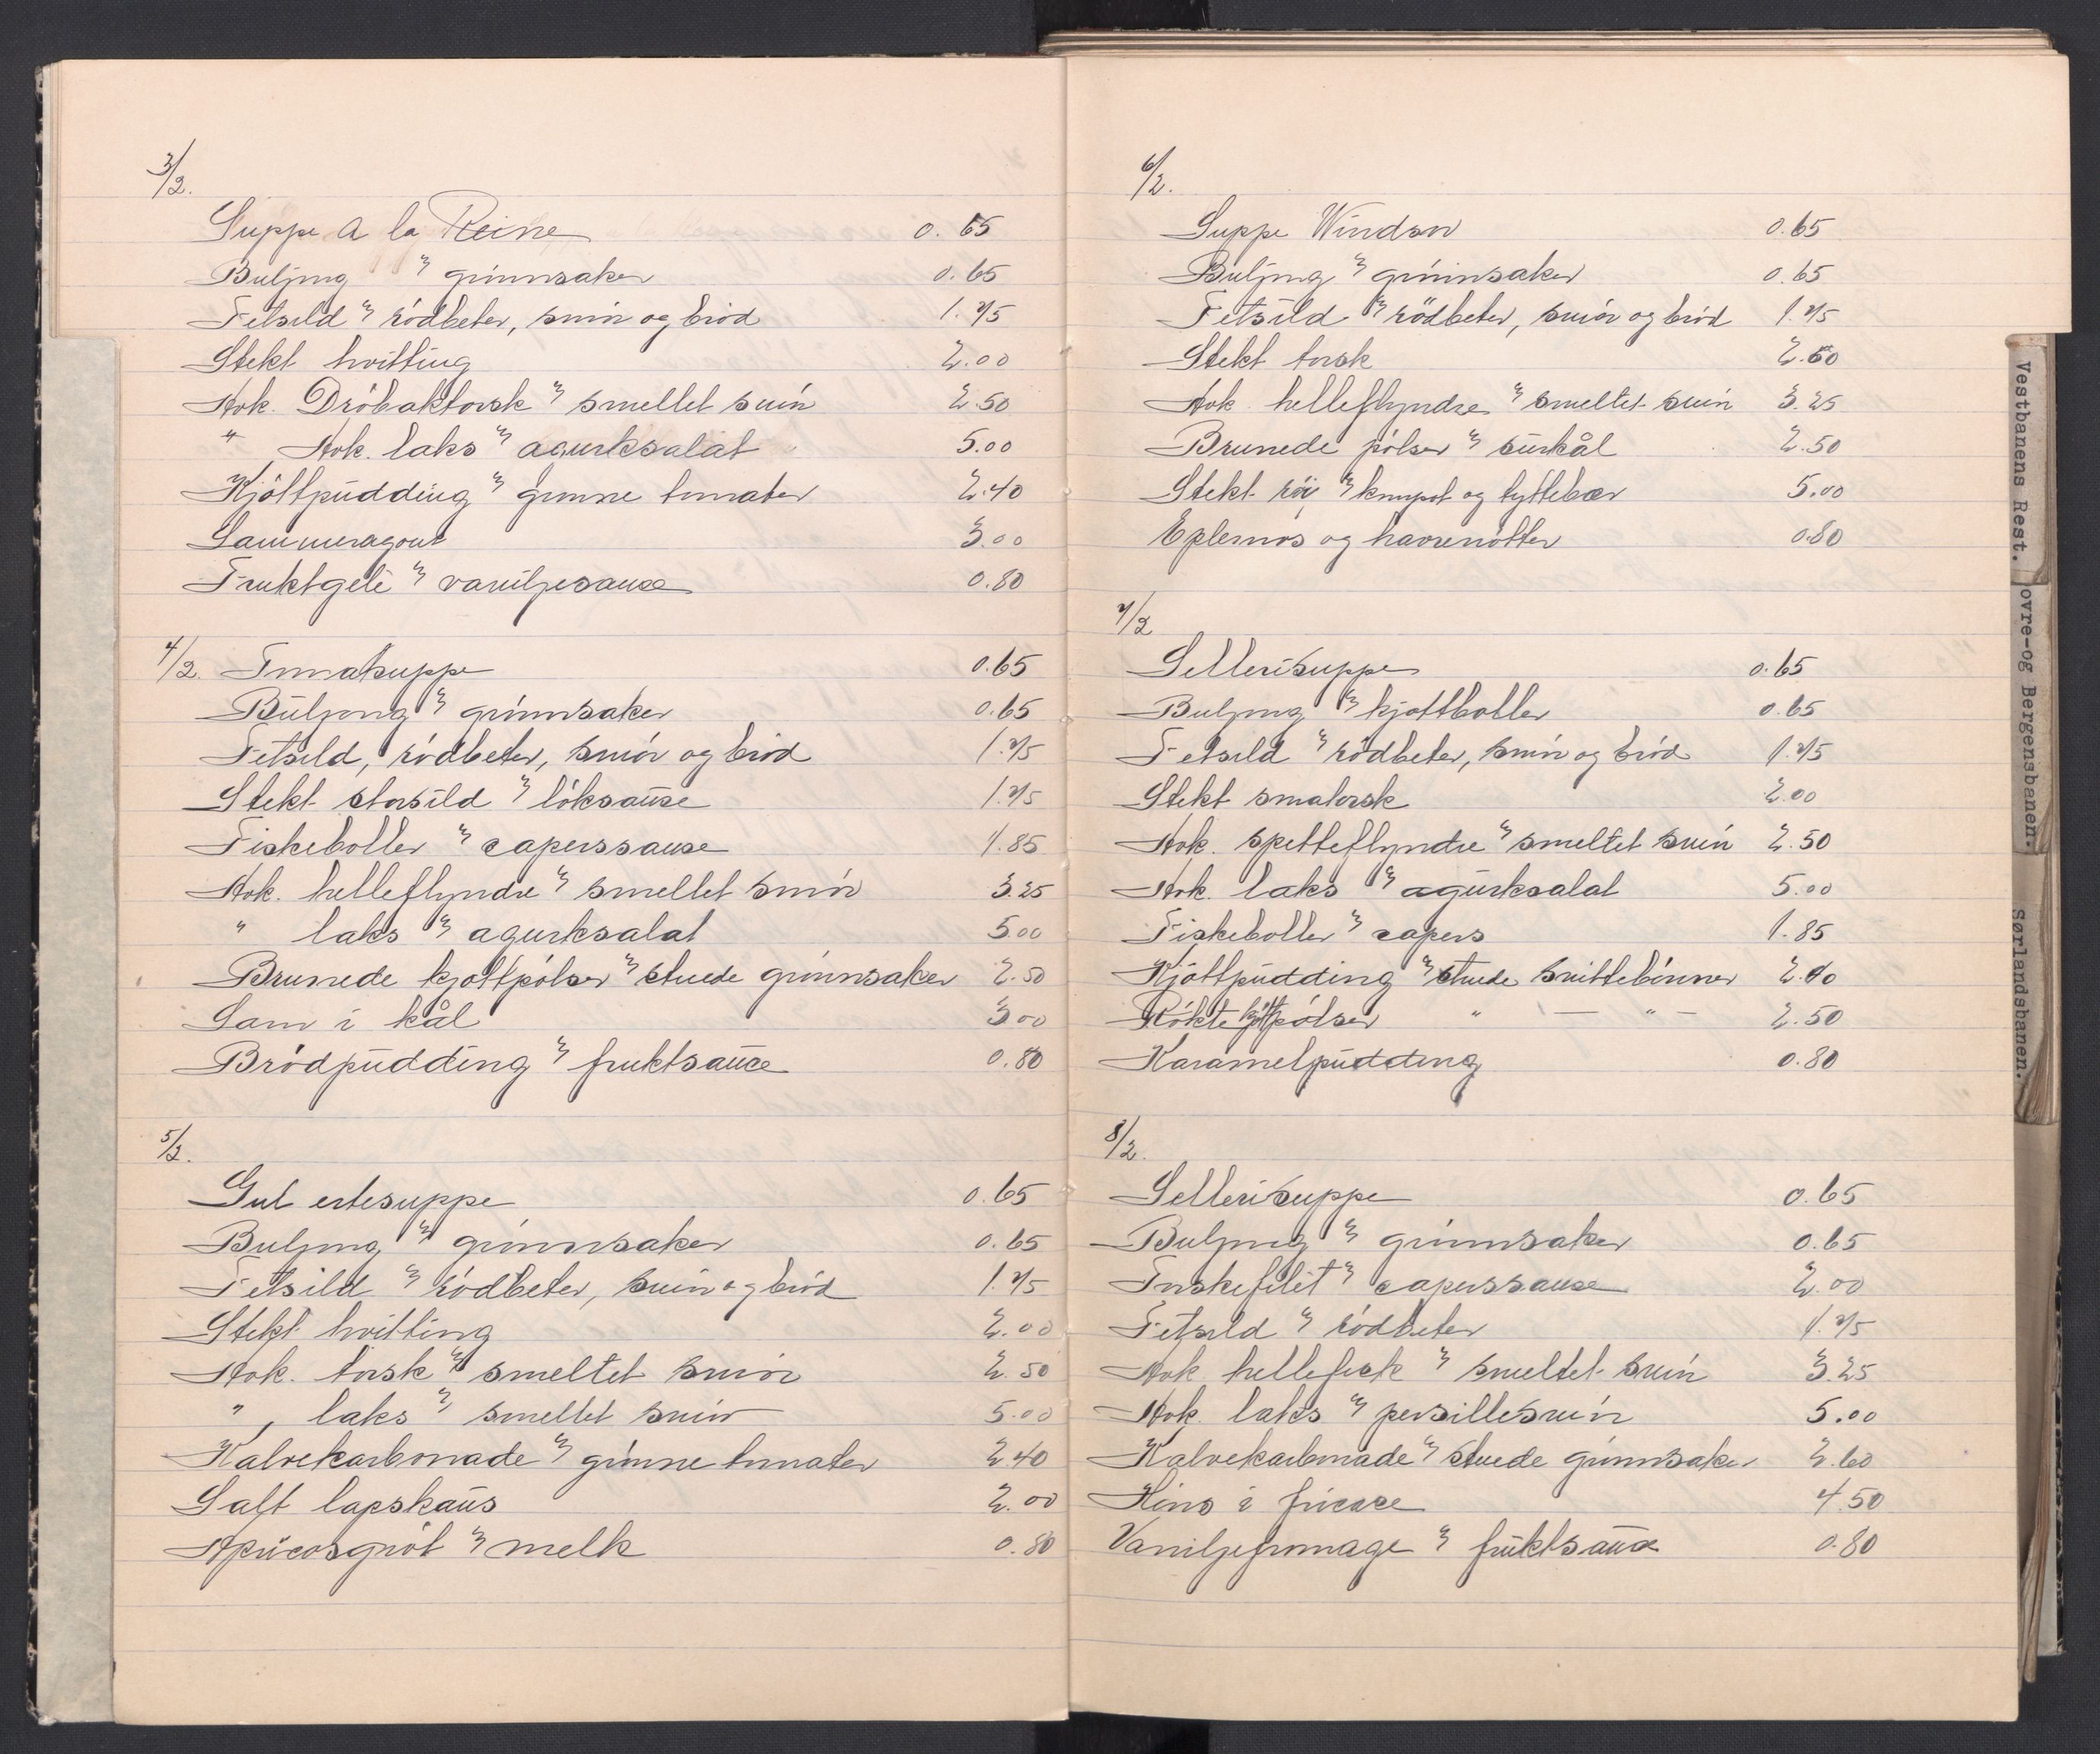 3/2.
Suppe A la Reine 0.65
Buljong m grønnsaker 0.65
Fetsild m rödbeter, smör og bröd 1.75
Stekt hvitting 2.00
Kok. Dröbaktorsk m smeltet smör 2.50
" Kok. laks m agurksalat 5.00
Kjöttpudding m grönne tomater 2.40
Lammeragout 3.00
Fruktgele m vaniljesause 0.80
4/2. Tomatsuppe 0.65
Buljong m grönnsaker 0.65
Fetsild, rödbeter, smör og bröd 1.75
Stekt storsild m löksause 1.75
Fiskeboller m caperssause 1.85
Kok. helleflyndre m smeltet smör 3.25
" laks m agurksalat 5.00
Brunede kjöttpölser m stuede grönnsaker 2.50
Lam i kål 3.00
Brödpudding m fruktsause 0.80
5/2.
Gul ertesuppe 0.65
Buljong m grönnsaker 0.65
Fetsild m rödbeter, smör og bröd 1.75
Stekt hvitting 2.00
Kok. torsk m smeltet smör 2.50
", laks m smeltet smör 5.00
Kalvekarbonade m grönne tomater 2.40
Salt lapskaus 2.00
Apricosgröt m melk 0.80
6/2.
Suppe Windsor 0.65
Buljong m grönnsaker 0.65
Fetsild m rödbeter, smör og bröd 1.75
Stekt torsk 2.50
Kok. helleflyndre m smeltet smör 3.25
Brunede pölser m surkål 2.50
Stekt m kompot og tyttebær 5.00
Eplemos og havrenötter 0.80
7/2
Sellerisuppe 0.65
Buljong m kjöttboller 0.65
Fetsild m rödbeter, smör og bröd 1.75
Stekt smatorsk 2.00
Kok. spetteflyndre m smeltet smör 2.50
Kok. laks m agurksalat 5.00
Fiskeboller m capers 1.85
Kjöttpudding m stuede snittebönner 2.40
Rökte kjöttpölser " — " — 2.50
Karamelpudding 0.80
8/2.
Sellerisuppe 0.65
Buljong m grönnsaker 0.65
Torskefilet m caperssause 2.00
Fetsild m rödbeter 1.75
Kok. hellefisk m smeltet smör 3.25
Kok. laks m persillesmör 5.00
Kalvekarbonade m stuede grönnsaker 2.60
Höns i fricase 4.50
Vaniljefromage m fruktsause 0.80
Vestbanens Rest.
ovre-og Bergensbanen.
Sørlandsbanen.